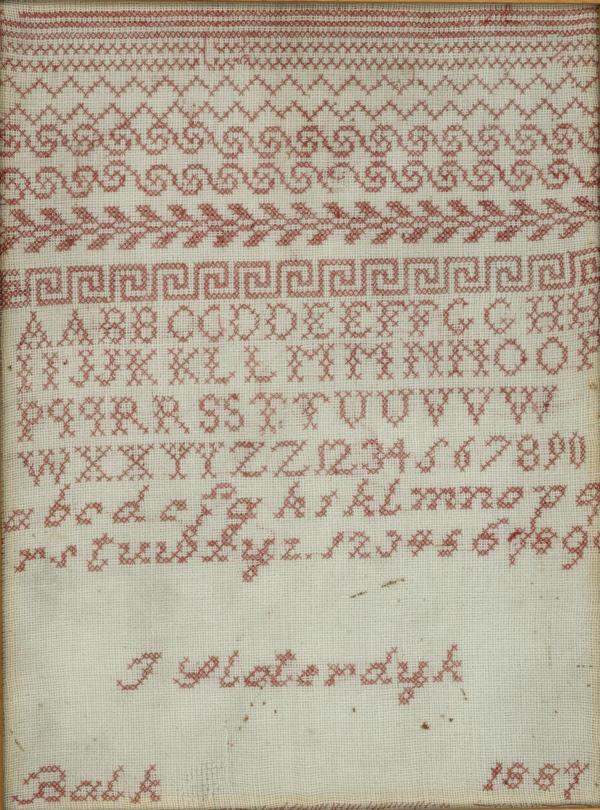 AABBCCDDEEFFGGHH
IIJJKKLLMMNNOOP
PQQRRSSTTUUVVW
WXXYYZZ1234567890
abcdefghiklmnopq
rstuvxyz. 123456789
J Sloterdyk
Balk 1887